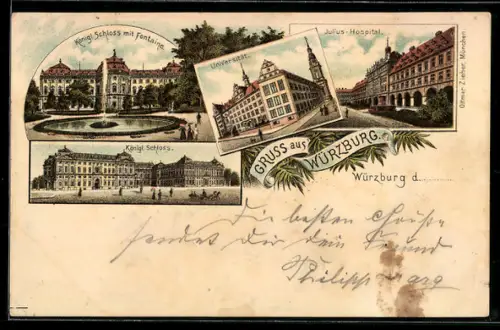 Königl. Schloss mit Fontaine.
Universität.
Julius-Hospital.
Ottmar Zieher, München.
Königl. Schloss.
GRUSS aus WÜRZBURG.
Würzburg d.
Die besten Grüße
sendet dir dein Freund
Philipp